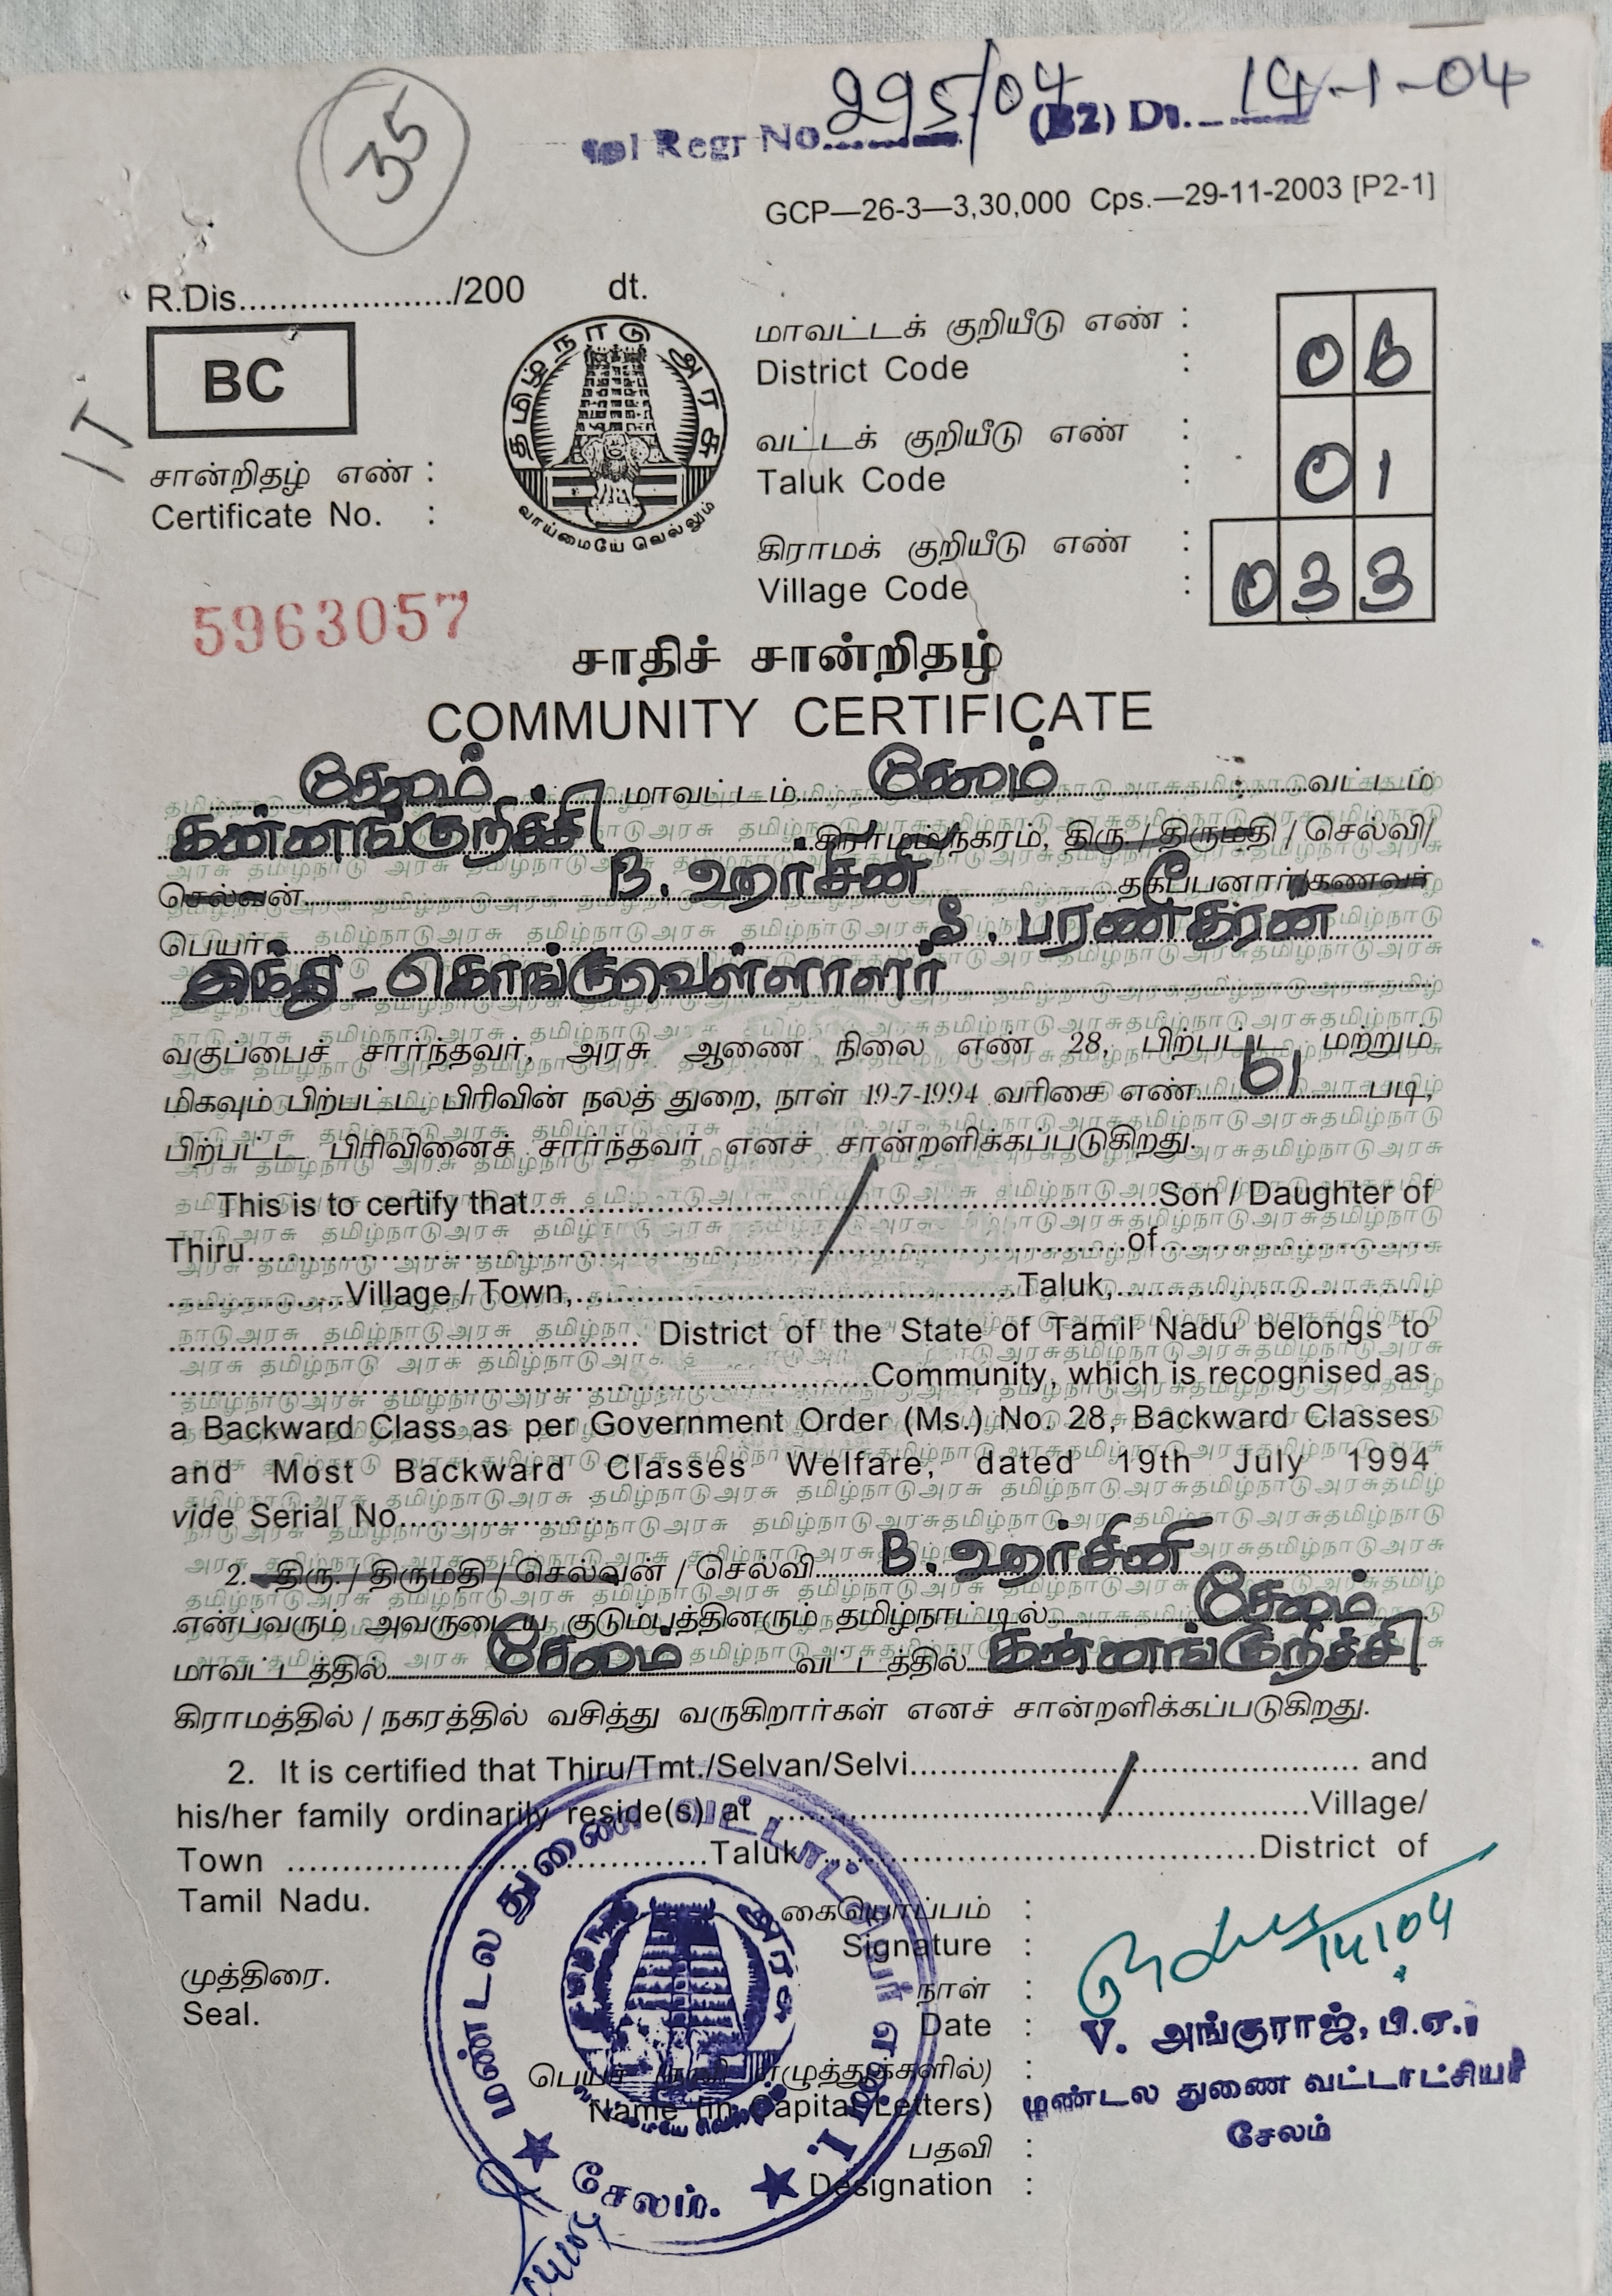 35
Regr No. 295/04 (B2) Dt. 14-1-04
GCP—26-3—3,30,000 Cps.—29-11-2003 [P2-1]
R.Dis...................../200 dt.
BC
தமிழ்நாடு அரசு
வாய்மையே வெல்லும்
மாவட்டக் குறியீடு எண் :
District Code : 06
வட்டக் குறியீடு எண் :
Taluk Code : 01
கிராமக் குறியீடு எண் :
Village Code : 033
சான்றிதழ் எண் :
Certificate No. :
5963057
சாதிச் சான்றிதழ்
COMMUNITY CERTIFICATE
சேலம் மாவட்டம் சேலம் வட்டம்
கன்னங்குறிச்சி கிராமம்/நகரம், திரு / திருமதி / செல்வி/
செல்வன் B. ஹர்சினி தகப்பனார்/கணவர்
பெயர் S. பரணீதரன்
இந்து - கொங்குவெள்ளாளர்
வகுப்பைச் சார்ந்தவர், அரசு ஆணை நிலை எண் 28, பிற்பட்ட மற்றும்
மிகவும் பிற்பட்ட பிரிவின் நலத் துறை, நாள் 19-7-1994 வரிசை எண் 61 படி,
பிற்பட்ட பிரிவினைச் சார்ந்தவர் எனச் சான்றளிக்கப்படுகிறது.
This is to certify that........................Son / Daughter of
Thiru........................of........................
................Village / Town,........................Taluk,........................
........................ District of the State of Tamil Nadu belongs to
........................Community, which is recognised as
a Backward Class as per Government Order (Ms.) No. 28, Backward Classes
and Most Backward Classes Welfare, dated 19th July 1994
vide Serial No....................
2. திரு. / திருமதி / செல்வன் / செல்வி B. ஹர்சினி
என்பவரும் அவருடைய குடும்பத்தினரும் தமிழ்நாட்டில் சேலம்
மாவட்டத்தில் சேலம் வட்டத்தில் கன்னங்குறிச்சி
கிராமத்தில் / நகரத்தில் வசித்து வருகிறார்கள் எனச் சான்றளிக்கப்படுகிறது.
2. It is certified that Thiru/Tmt./Selvan/Selvi........................ and
his/her family ordinarily reside(s) at ........................Village/
Town ........................Taluk........................District of
Tamil Nadu.
கையொப்பம் :
Signature :
14/1/04
முத்திரை.
Seal.
நாள் :
Date :
V. அங்குராஜ், பி.ஏ.,
பெயர் (தனி எழுத்துக்களில்) :
Name (in Capital Letters)
மண்டல துணை வட்டாட்சியர்
சேலம்
பதவி :
Designation :
மண்டல துணை வட்டாட்சியர் எண். 1.
தமிழ்நாடு அரசு
சேலம்.